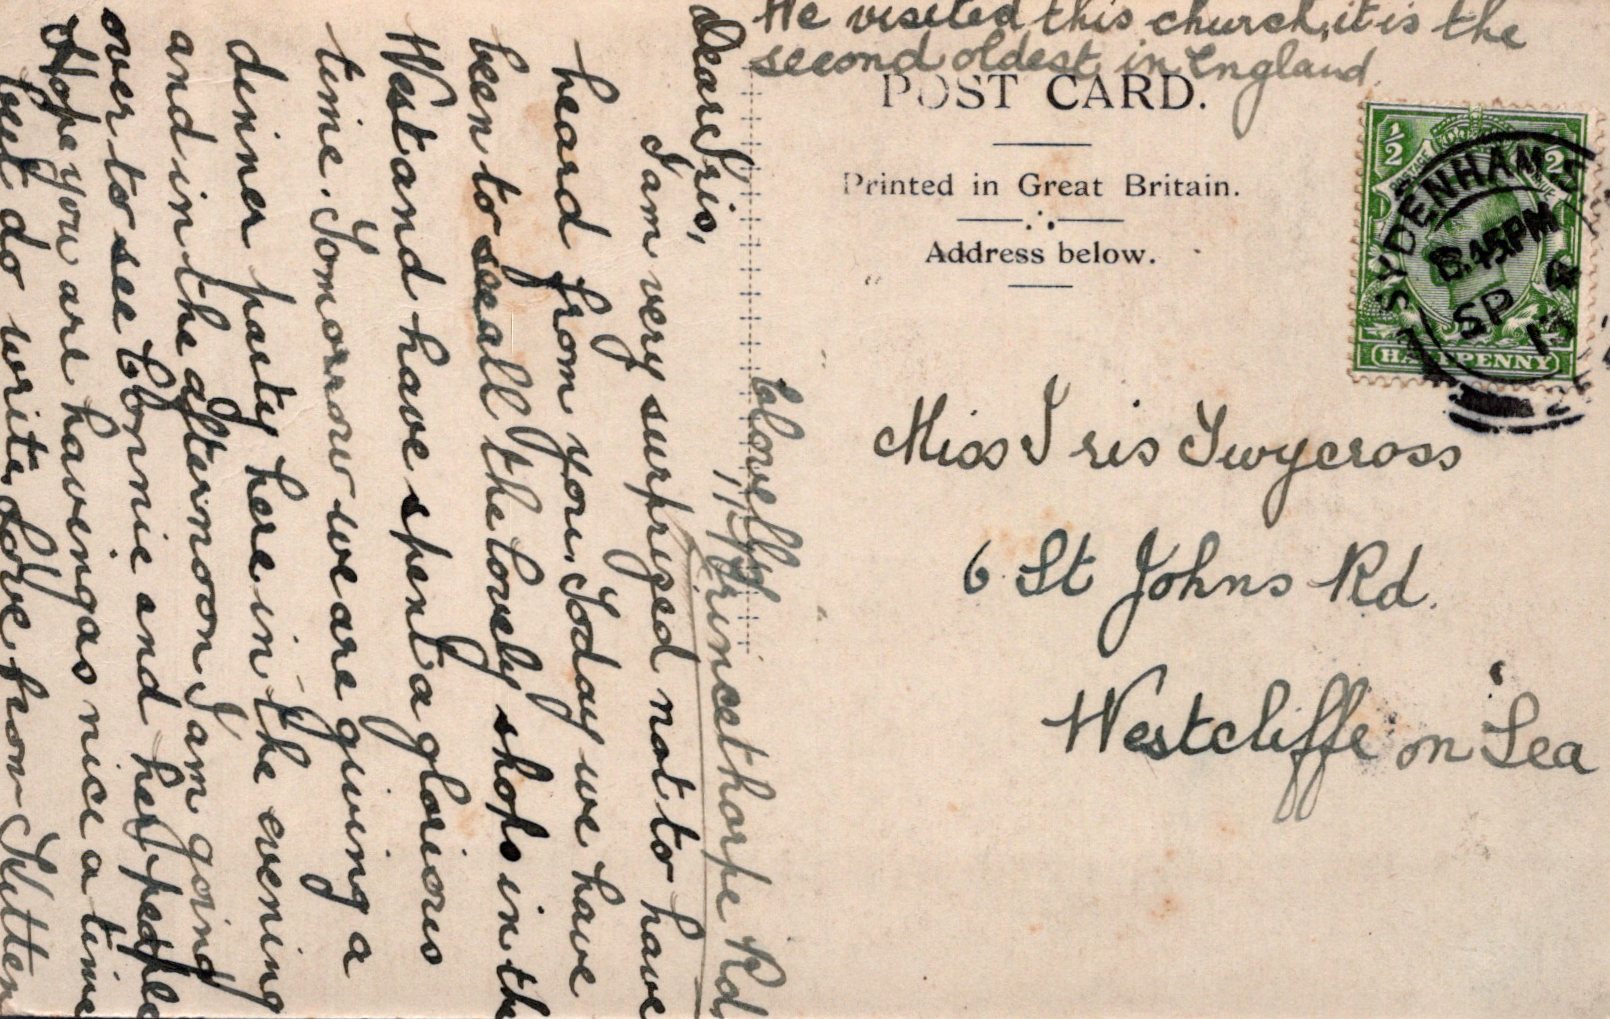 We visited this church, it is the
second oldest in England
POST CARD.
Printed in Great Britain.
Address below.
1/2
SYDENHAM
8.45PM
SP 4
13
HALFPENNY
Miss Iris Twycross
6 St Johns Rd.
Westcliffe on Sea
Clovelly
11 Princethorpe Rd
Dear Iris,
I am very surprized not to have
heard from you. Today we have
been to see all the lovely shops in the
West and have spent a glorious
time. Tomorrow we are giving a
dinner party here in the evening
and in the afternoon I am going
over to see Connie and her people
Hope you are having as nice a time
do write. Love from Kitten